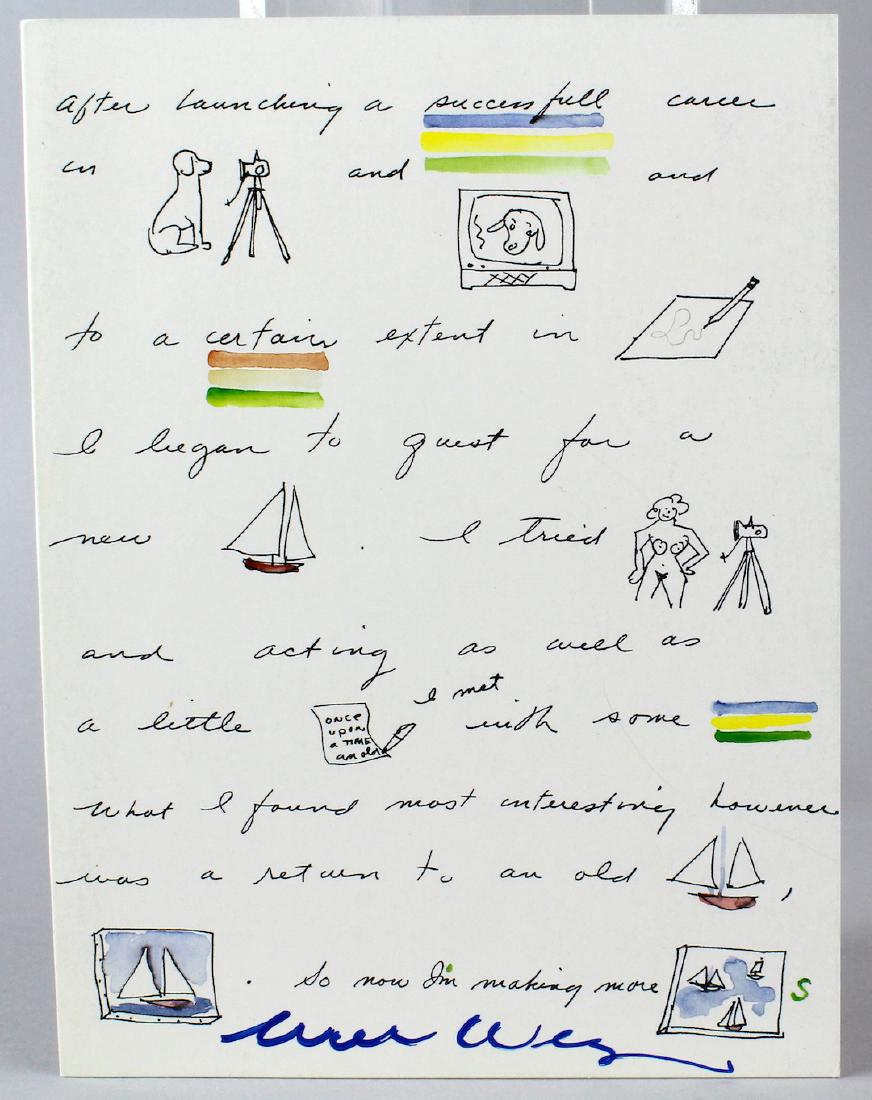 After launching a successfull career
in and and
to a certain extent in
I began to quest for a
new . I tried
and acting as well as
a little once upon a TIME an old I met with some
What I found most interesting however
was a return to an old ,
. So now I'm making more s